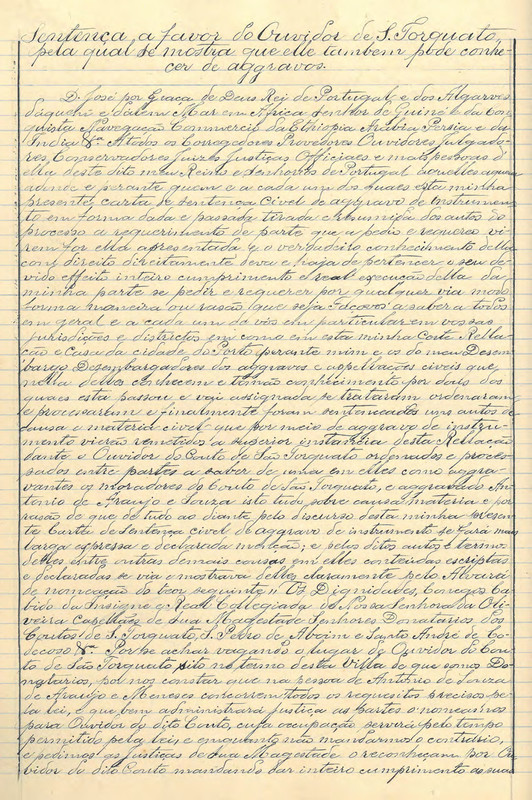 Sentença a favor do Ouvidor de S. Torquato,
pela qual se mostra que elle tambem pode conhe-
cer de aggravos.
D. José por Graça de Deus Rei de Portugal e dos Algarves
daquem e dalem Mar em Africa Senhor de Guiné e da Con
quista Navegação Commercio da Ethiopia Arabia Persia e da
India &ª. A todos os Corregedores Provedores Ouvidores Julgado-
res, Conservadores Juizes Justiças Officiaes e mais pessoas d'
ella deste dito meu Reino e Senhorios de Portugal àquelles aquem
adonde e perante quem e a cada um dos quaes esta minha
presente carta de sentença Civel de aggravo de instrumen
to em forma dada e passada tirada e do dos autos do
processo a requerimento de parte que a pedio e requereo vi
rem for ella apresentada e o verdadeiro conhecimento della
com direito direitamente deva e haja de pertencer e seu de-
vido effeito inteiro cumprimento e real execução della da
minha parte se pedir e requerer por qualquer via modo
forma maneira ou rasão que seja Faço vos a saber a todos
em geral e a cada um de vós em particular em vossas
jurisdições e districtos em como em esta minha Corte Rella
ção e Casa da cidade do Porto perante mim e os do meu Desem
bargo Desembargadores dos aggravos e appellações civeis que
nella delles conhecem e tomão conhecimento por dois dos
quaes esta passou e vai assignada se trataram ordenaram
e processaram e finalmente foram sentenceados uns autos de
causa e materia civel que por meio de aggravo de instru-
mento vierão remetidos a superior instancia desta Rellação
dante o Ouvidor do Couto de São Torquato ordenados e proces-
sados entre partes a saber de uma em elles como aggra-
vantes os moradores do Couto de São Torquato, e aggravado An-
tonio de Araujo e Souza isto tudo sobre causa materia e por
rasão de que de tudo ao diante pelo discurso desta minha presen
te Carta de Sentença civel de aggravo de instrumento se fará mais
larga expressa e declarada menção; e pelos ditos autos e termos
delles entre outras demais causas em elles conteúdas escriptas
e declaradas se via e mostrava delles claramente pelo Alvará
de nomeação do teor seguinte,, Os Dignidades, Conegos Ca-
bido da Insigne e Real Collegiada de Nossa Senhora da Oli-
veira Capellães de Sua Magestade Senhores Donatarios dos
Coutos de S. Torquato, S. Pedro de Aboim e Santo André de Co-
deçoso &ª. Por se achar vagando o lugar de Ouvidor do Cou-
to de São Torquato, sito no termo desta Villa de que somos Do-
natarios, por nos constar que na pessoa de Antonio de Souza
de Araujo e Meneses concorrem todos os requesitos precisos pe-
la lei, e que bem administrará justiça as partes o nomeamos
para Ouvidor do dito Couto, cuja occupação servirá pelo tempo
permitido pela lei, e enquanto não mandarmos o contrario,
e pedimos às Justiças de Sua Magestade o reconheçam por Ou-
vidor do dito Couto mandando dar inteiro cumprimento as suas